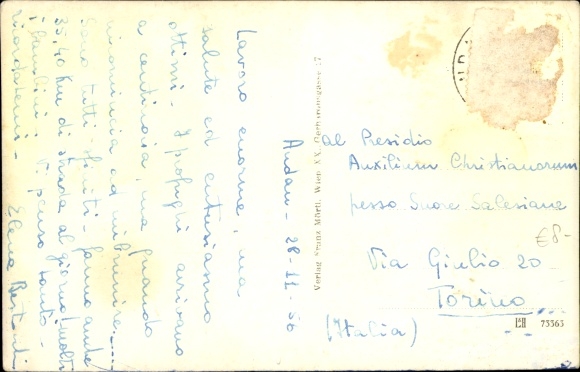 Andau - 28-11-56
Lavoro enorme, ma
salute ed entusiasmo
ottimi - I profughi arrivano
a centinaia, ma quando
incomincia ad imbrunire....
sono tutti finiti - fanno anche
35,40 Km di strada al giorno (molti
i bambini). Vi penso tanto -
ricordatemi -
Elena
Verlag Franz Mörtl, Wien XX.
al Presidio
Auxilium Christianorum
presso Suore Salesiane
Via Giulio 20 -
Torino
(Italia)
€8-
L&H 73363